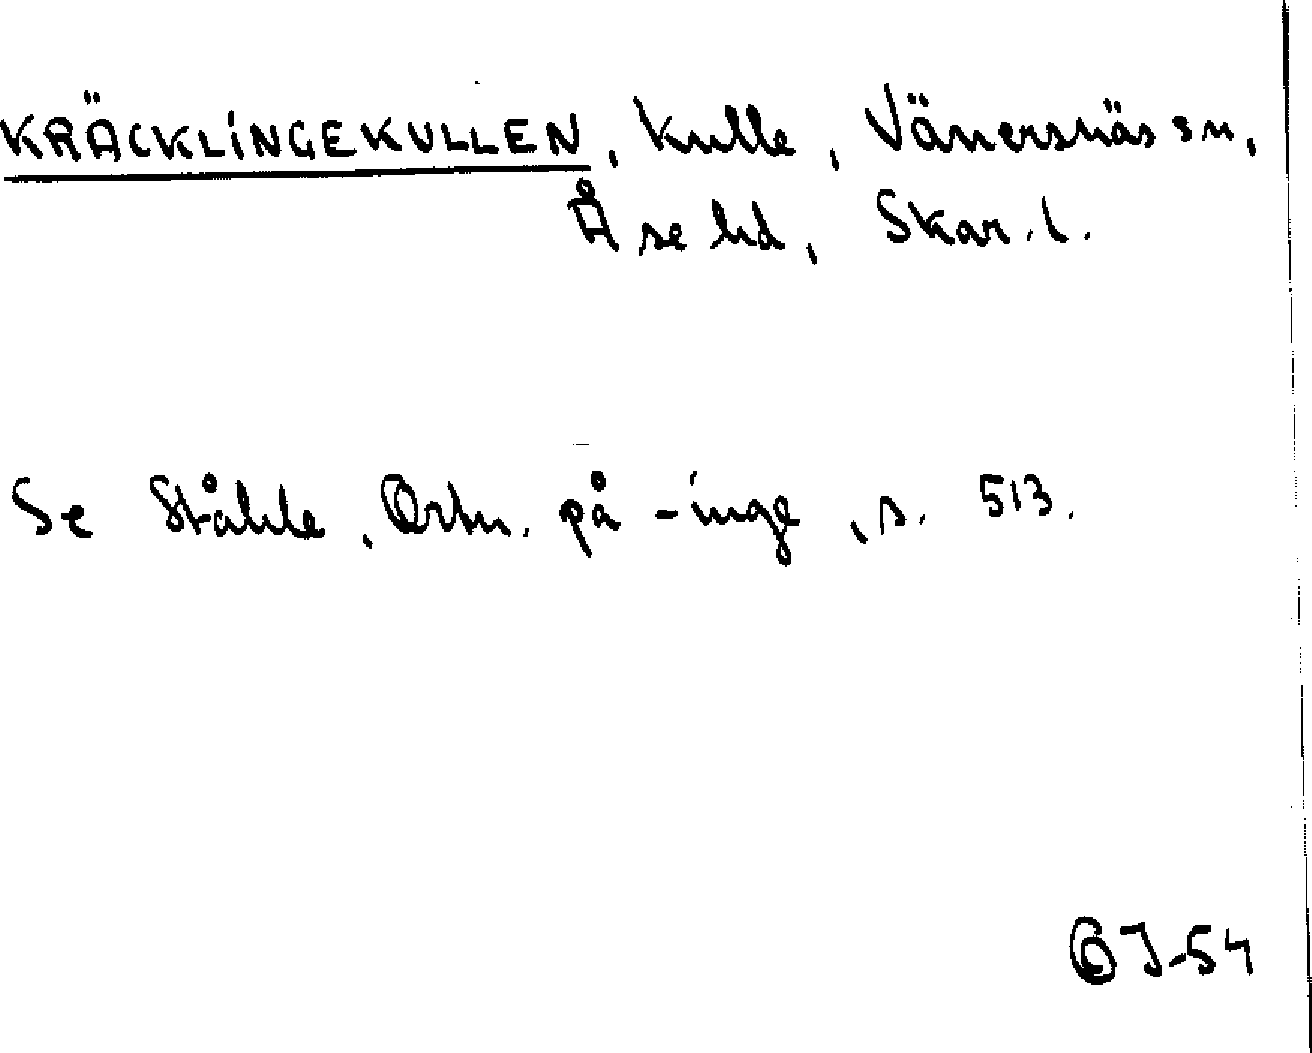 KRÄCKLINGEKULLEN, kulle, Vänersnäs sn,
Åse hd, Skar. l.
Se Ståhle, Ortn. på -inge, s. 513.
J-54